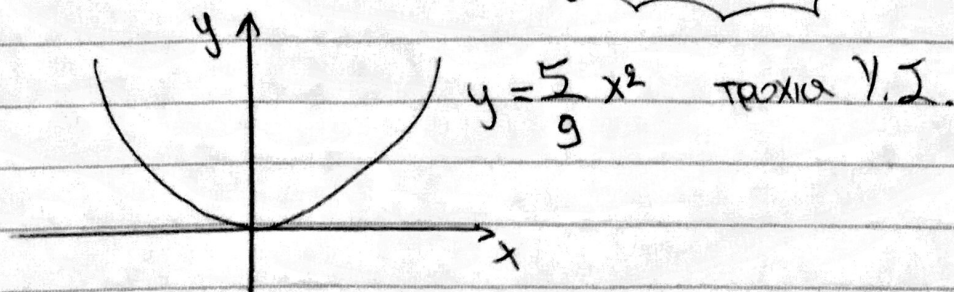 y
y = 5/9 x² τροχιά Υ.Σ.
x